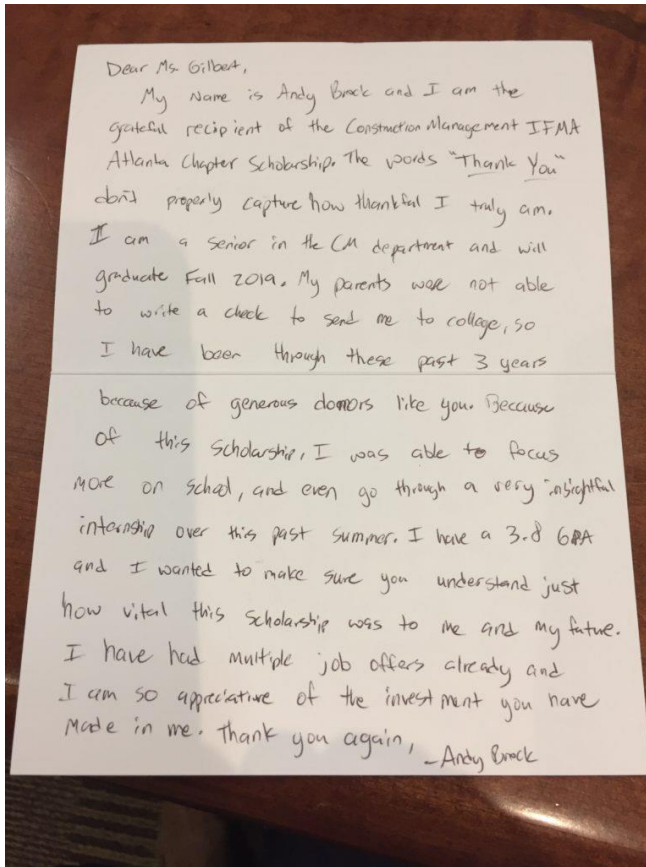 Dear Ms. Gilbert,
My Name is Andy Brock and I am the
grateful recipient of the Construction Management IFMA
Atlanta Chapter Scholarship. The words "Thank You"
don't properly capture how thankful I truly am.
I am a senior in the CM department and will
graduate Fall 2019. My parents were not able
to write a check to send me to college, so
I have been through these past 3 years
because of generous donors like you. Because
of this scholarship, I was able to focus
more on school, and even go through a very insightful
internship over this past summer. I have a 3.8 GPA
and I wanted to make sure you understand just
how vital this scholarship was to me and my future.
I have had multiple job offers already and
I am so appreciative of the investment you have
made in me. Thank you again,
-Andy Brock